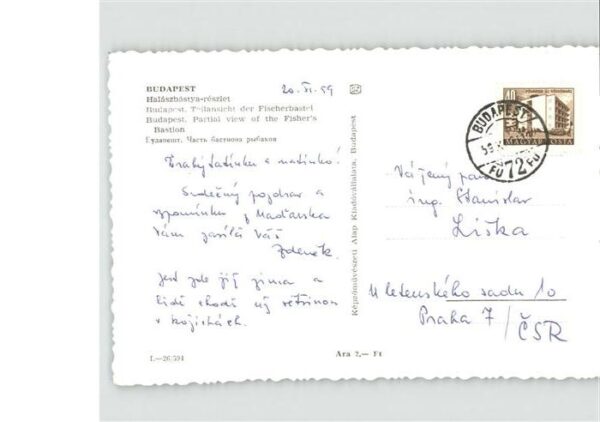 BUDAPEST
Halászbástya-részlet
Budapest. Teilansicht der Fischerbastei
Budapest. Partial view of the Fisher's
Bastion
Будапешт. Часть бастиона рыбаков
20. XI. 59
Drahý tatínku a matinko!
Srdečný pozdrav a
vzpomínku z Maďarska
Vám zasílá Váš
Zdeněk.
Jest zde již zima a
lidé chodí už většinou
v kožichách.
I.—26/594
Ara 2,— Ft
Képzőművészeti Alap Kiadóvállalata, Budapest
40
MAGYAR POSTA
BUDAPEST
72
FÜ
FÜ
Vážený pan
ing. Stanislav
Liška
U letenského sadu 10
Praha 7/
ČSR